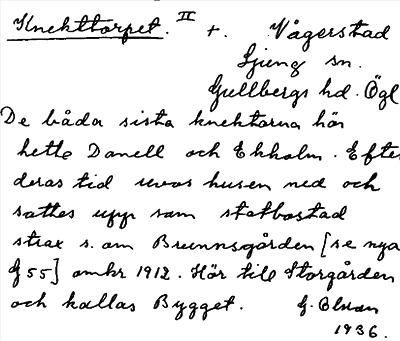 Knekttorpet. II t. Vågerstad
Ljung sn.
Gullbergs hd. Ögl
De båda sista knektarna här
hette Danell och Ekholm. Efter
deras tid revos husen ned och
sattes upp som statbostad
strax s. om Brunnsgården [se nya
G 55] omkr 1912. Hör till Storgården
och kallas Bygget. G. Olson
1936.